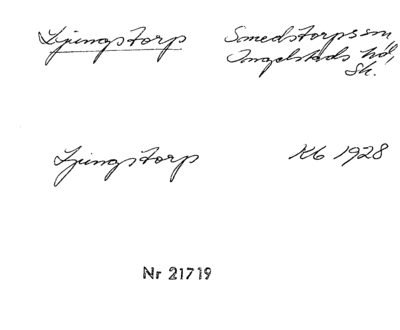 Ljungstorp
Smedstorps sn,
Ingelstads hd,
Sk.
Ljungstorp
Kb 1928
Nr 21719